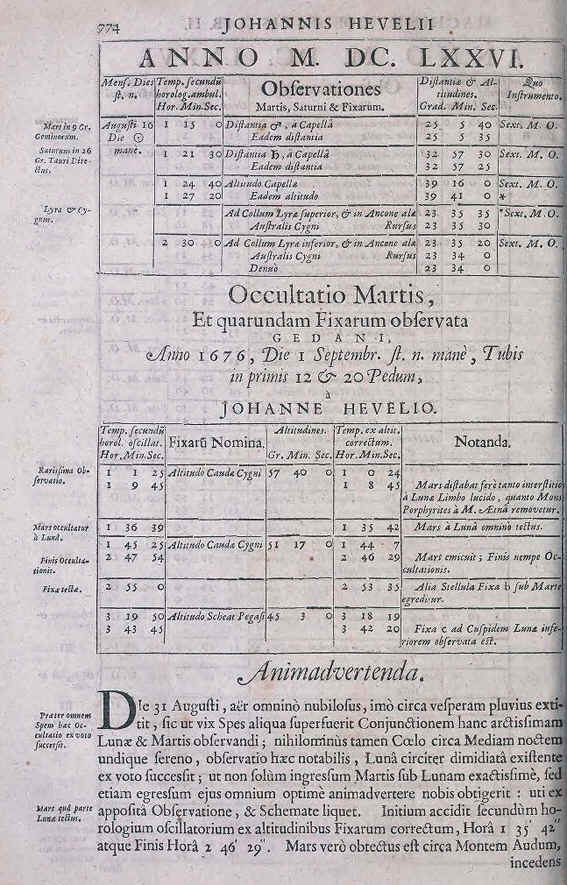 774 JOHANNIS HEVELII
ANNO M. DC. LXXVI.
Mens. Dies Temp. secundũ Observationes Distantiæ & Al- Quo
st. n. horolog. ambul. Martis, Saturni & Fixarum. titudines. Instrumento.
Hor. Min. Sec. Grad. Min. Sec.
Mars in 9 Gr. Geminorum.
Augusti 16 1 15 0 Distantia ♂, à Capellâ 25 5 40 Sext. M. O.
Die ☉ Eadem distantia 25 5 35
Saturnus in 26 Gr. Tauri Dire-ctus.
mane. 1 21 30 Distantia ♄, à Capellâ 32 57 30 Sext. M. O.
Eadem distantia 32 57 25
1 24 40 Altitudo Capellæ 39 16 0 Sext. M. O.
1 27 20 Eadem altitudo 39 41 0 *
Lyra & Cy-gnus.
Ad Collum Lyræ superior, & in Ancone alæ 23 35 35 *Sext. M. O.
Australis Cygni Rursus 23 35 30
2 30 0 Ad Collum Lyræ inferior, & in Ancone alæ 23 35 20 Sext. M. O.
Australis Cygni Rursus 23 34 0
Denuo 23 34 0
Occultatio Martis,
Et quarundam Fixarum observata
GEDANI,
Anno 1676, Die 1 Septembr. st. n. manè, Tubis
in primis 12 & 20 Pedum,
à
JOHANNE HEVELIO.
Temp. secundũ Fixarũ Nomina. Altitudines. Temp. ex altit. Notanda.
horol. oscillat. correctum.
Hor. Min. Sec. Gr. Min. Sec. Hor. Min. Sec.
Rarissima Ob-servatio.
1 1 25 Altitudo Caudæ Cygni 57 40 0 1 0 24
1 9 45 1 8 45 Mars distabat ferè tanto interstitio
à Lunæ Limbo lucido, quanto Mons
Porphyrites à M. Ætnâ removetur.
Mars occultatur à Lunâ.
1 36 39 1 35 42 Mars à Lunâ omninò tectus.
1 45 25 Altitudo Caudæ Cygni 51 17 0 1 44 7
Finis Occulta-tionis.
2 47 54 2 46 29 Mars emicuit; Finis nempe Oc-
cultationis.
Fixæ tectæ.
2 55 0 2 53 35 Alia Stellula Fixa b sub Marte
egreditur.
3 19 50 Altitudo Scheat Pegasi 45 3 0 3 18 19
3 43 45 3 42 20 Fixa c ad Cuspidem Lunæ infe-
riorem observata est.
Animadvertenda.
Die 31 Augusti, aër omninò nubilosus, imò circa vesperam pluvius exti-
Præter omnem Spem hæc Oc-cultatio ex voto successit.
tit, sic ut vix Spes aliqua superfuerit Conjunctionem hanc arctissimam
Lunæ & Martis observandi; nihilominùs tamen Cœlo circa Mediam noctem
undique sereno, observatio hæc notabilis, Lunâ circiter dimidiatâ existente
ex voto successit; ut non solùm ingressum Martis sub Lunam exactissimè, sed
etiam egressum ejus omnium optimè animadvertere nobis obtigerit: uti ex
Mars quâ parte Lunæ tectus.
appositâ Observatione, & Schemate liquet. Initium accidit secundùm ho-
rologium oscillatorium ex altitudinibus Fixarum correctum, Horâ 1 35′ 42″
atque Finis Horâ 2 46′ 29″. Mars verò obtectus est circa Montem Audum,
incedens